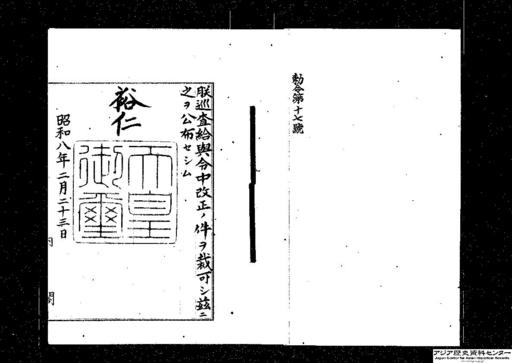 勅令第十七號
朕巡査給與令中改正ノ件ヲ裁可シ茲ニ
之ヲ公布セシム
裕仁
天皇御璽
昭和八年二月二十三日
内閣
アジア歴史資料センター
Japan Center for Asian Historical Records